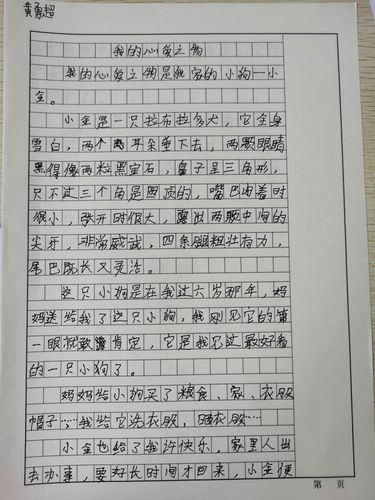 黄勇超
我的心爱之物
我的心爱之物是我家的小狗一小
金。
小金是一只拉布拉多犬，它全身
雪白，两个耳朵垂下去，两颗眼睛
黑得像两粒黑宝石，鼻子呈三角形，
只不过三个角是圆的，嘴巴闭着时
很小，张开时很大，露出两颗中间的
尖牙，非常威武，四条腿粗壮有力，
尾巴既长又灵活。
这只小狗是在我过六岁那年，妈
妈送给我了这只小狗，我刚见它的第
一眼就敢肯定，它是我见过最好看
的一只小狗了。
妈妈给小狗买了粮食、家、衣服
帽子……我给它洗衣服、晒衣服……
小金也给了我许快乐，家里人出
去办事，要好长时间才回来，小金便
第 页